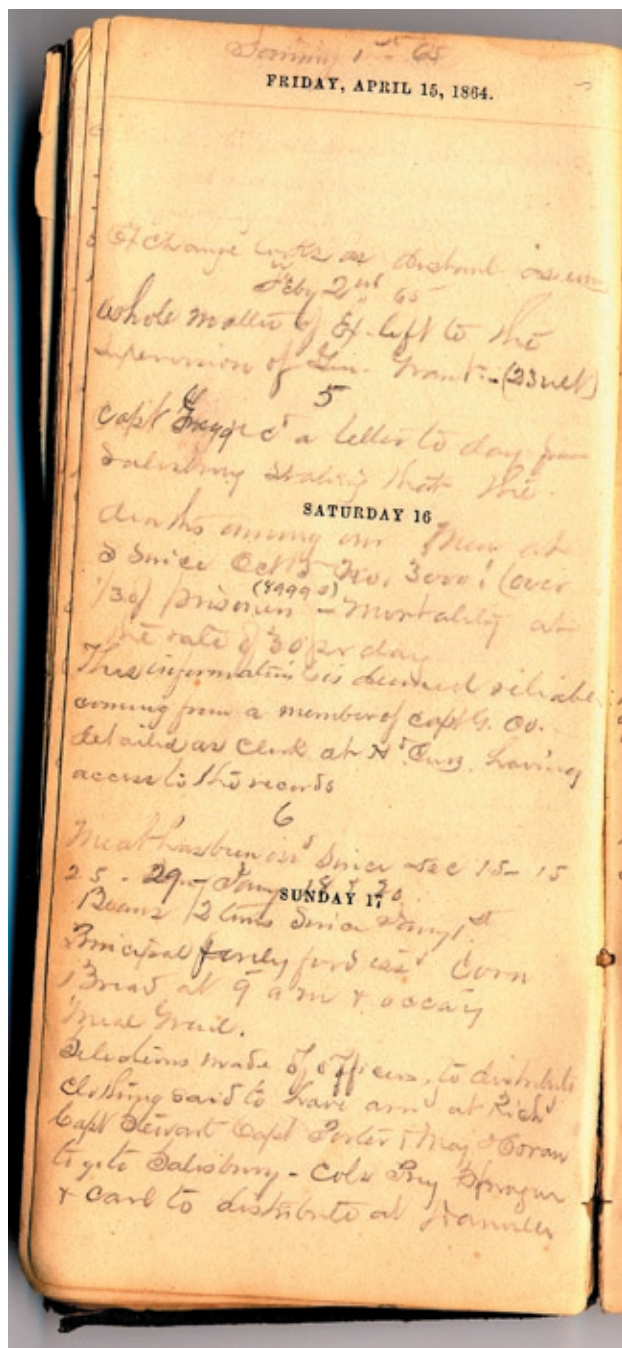 1st 65
FRIDAY, APRIL 15, 1864.
Exchange looks as distant as ever
Feby 2nd 65
whole matter of Ex- left to the
supervision of Gen. Grant - (23 ult)
5
Capt a letter to day from
Salisbury stating that the
SATURDAY 16
deaths among our men at
S since Oct 5 No. 3000! (over
1/3 of prisoners - mortality at
the rate of 30 per day
This information is deemed reliable
coming from a member of Capt G. Co.
detailed as Clerk at having
access to the records
6
Meat has been issd since Dec 15 - 15
25 - 29 - Jany 18 & 20
SUNDAY 17
Beans 12 times since Jany 1st
Principal food issd Corn
Bread at 9 a m &
Meal
Selections made of officers, to distribute
clothing said to have arrd at Richd
Capt Stewart Capt Porter & Maj
to go to Salisbury - Cols Sprague
& Carl to distribute at Danville